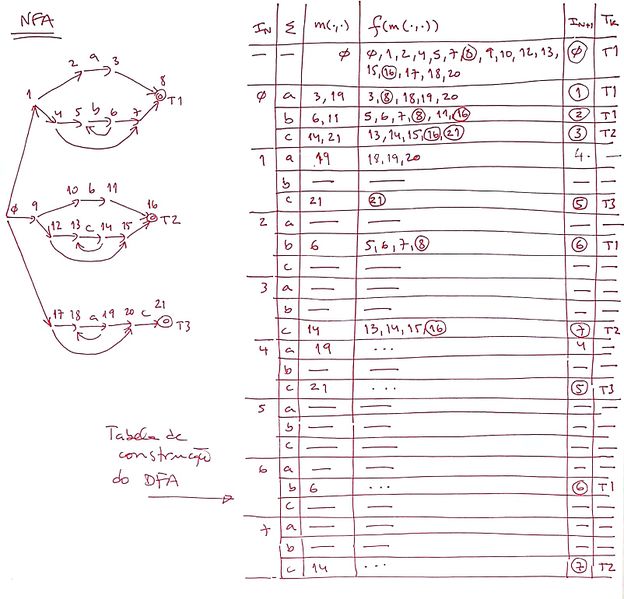 NFA
2 a 3
8
T1
1
4 5 b 6 7
10 b 11
16
T2
φ 9
12 13 c 14 15
17 18 a 19 20 c 21
T3
Tabela de
construção
do DFA
IN Σ m(·,·) f(m(·,·)) IN+1 Tk
— — φ φ, 1, 2, 4, 5, 7, 8, 9, 10, 12, 13, φ T1
15, 16, 17, 18, 20
φ a 3, 19 3, 8, 18, 19, 20 1 T1
b 6, 11 5, 6, 7, 8, 11, 16 2 T1
c 14, 21 13, 14, 15, 16, 21 3 T2
1 a 19 18, 19, 20 4 —
b — — — —
c 21 21 5 T3
2 a — — — —
b 6 5, 6, 7, 8 6 T1
c — — — —
3 a — — — —
b — — — —
c 14 13, 14, 15, 16 7 T2
4 a 19 ... 4 —
b — — — —
c 21 ... 5 T3
5 a — — — —
b — — — —
c — — — —
6 a — — — —
b 6 ... 6 T1
c — — — —
7 a — — — —
b — — — —
c 14 ... 7 T2